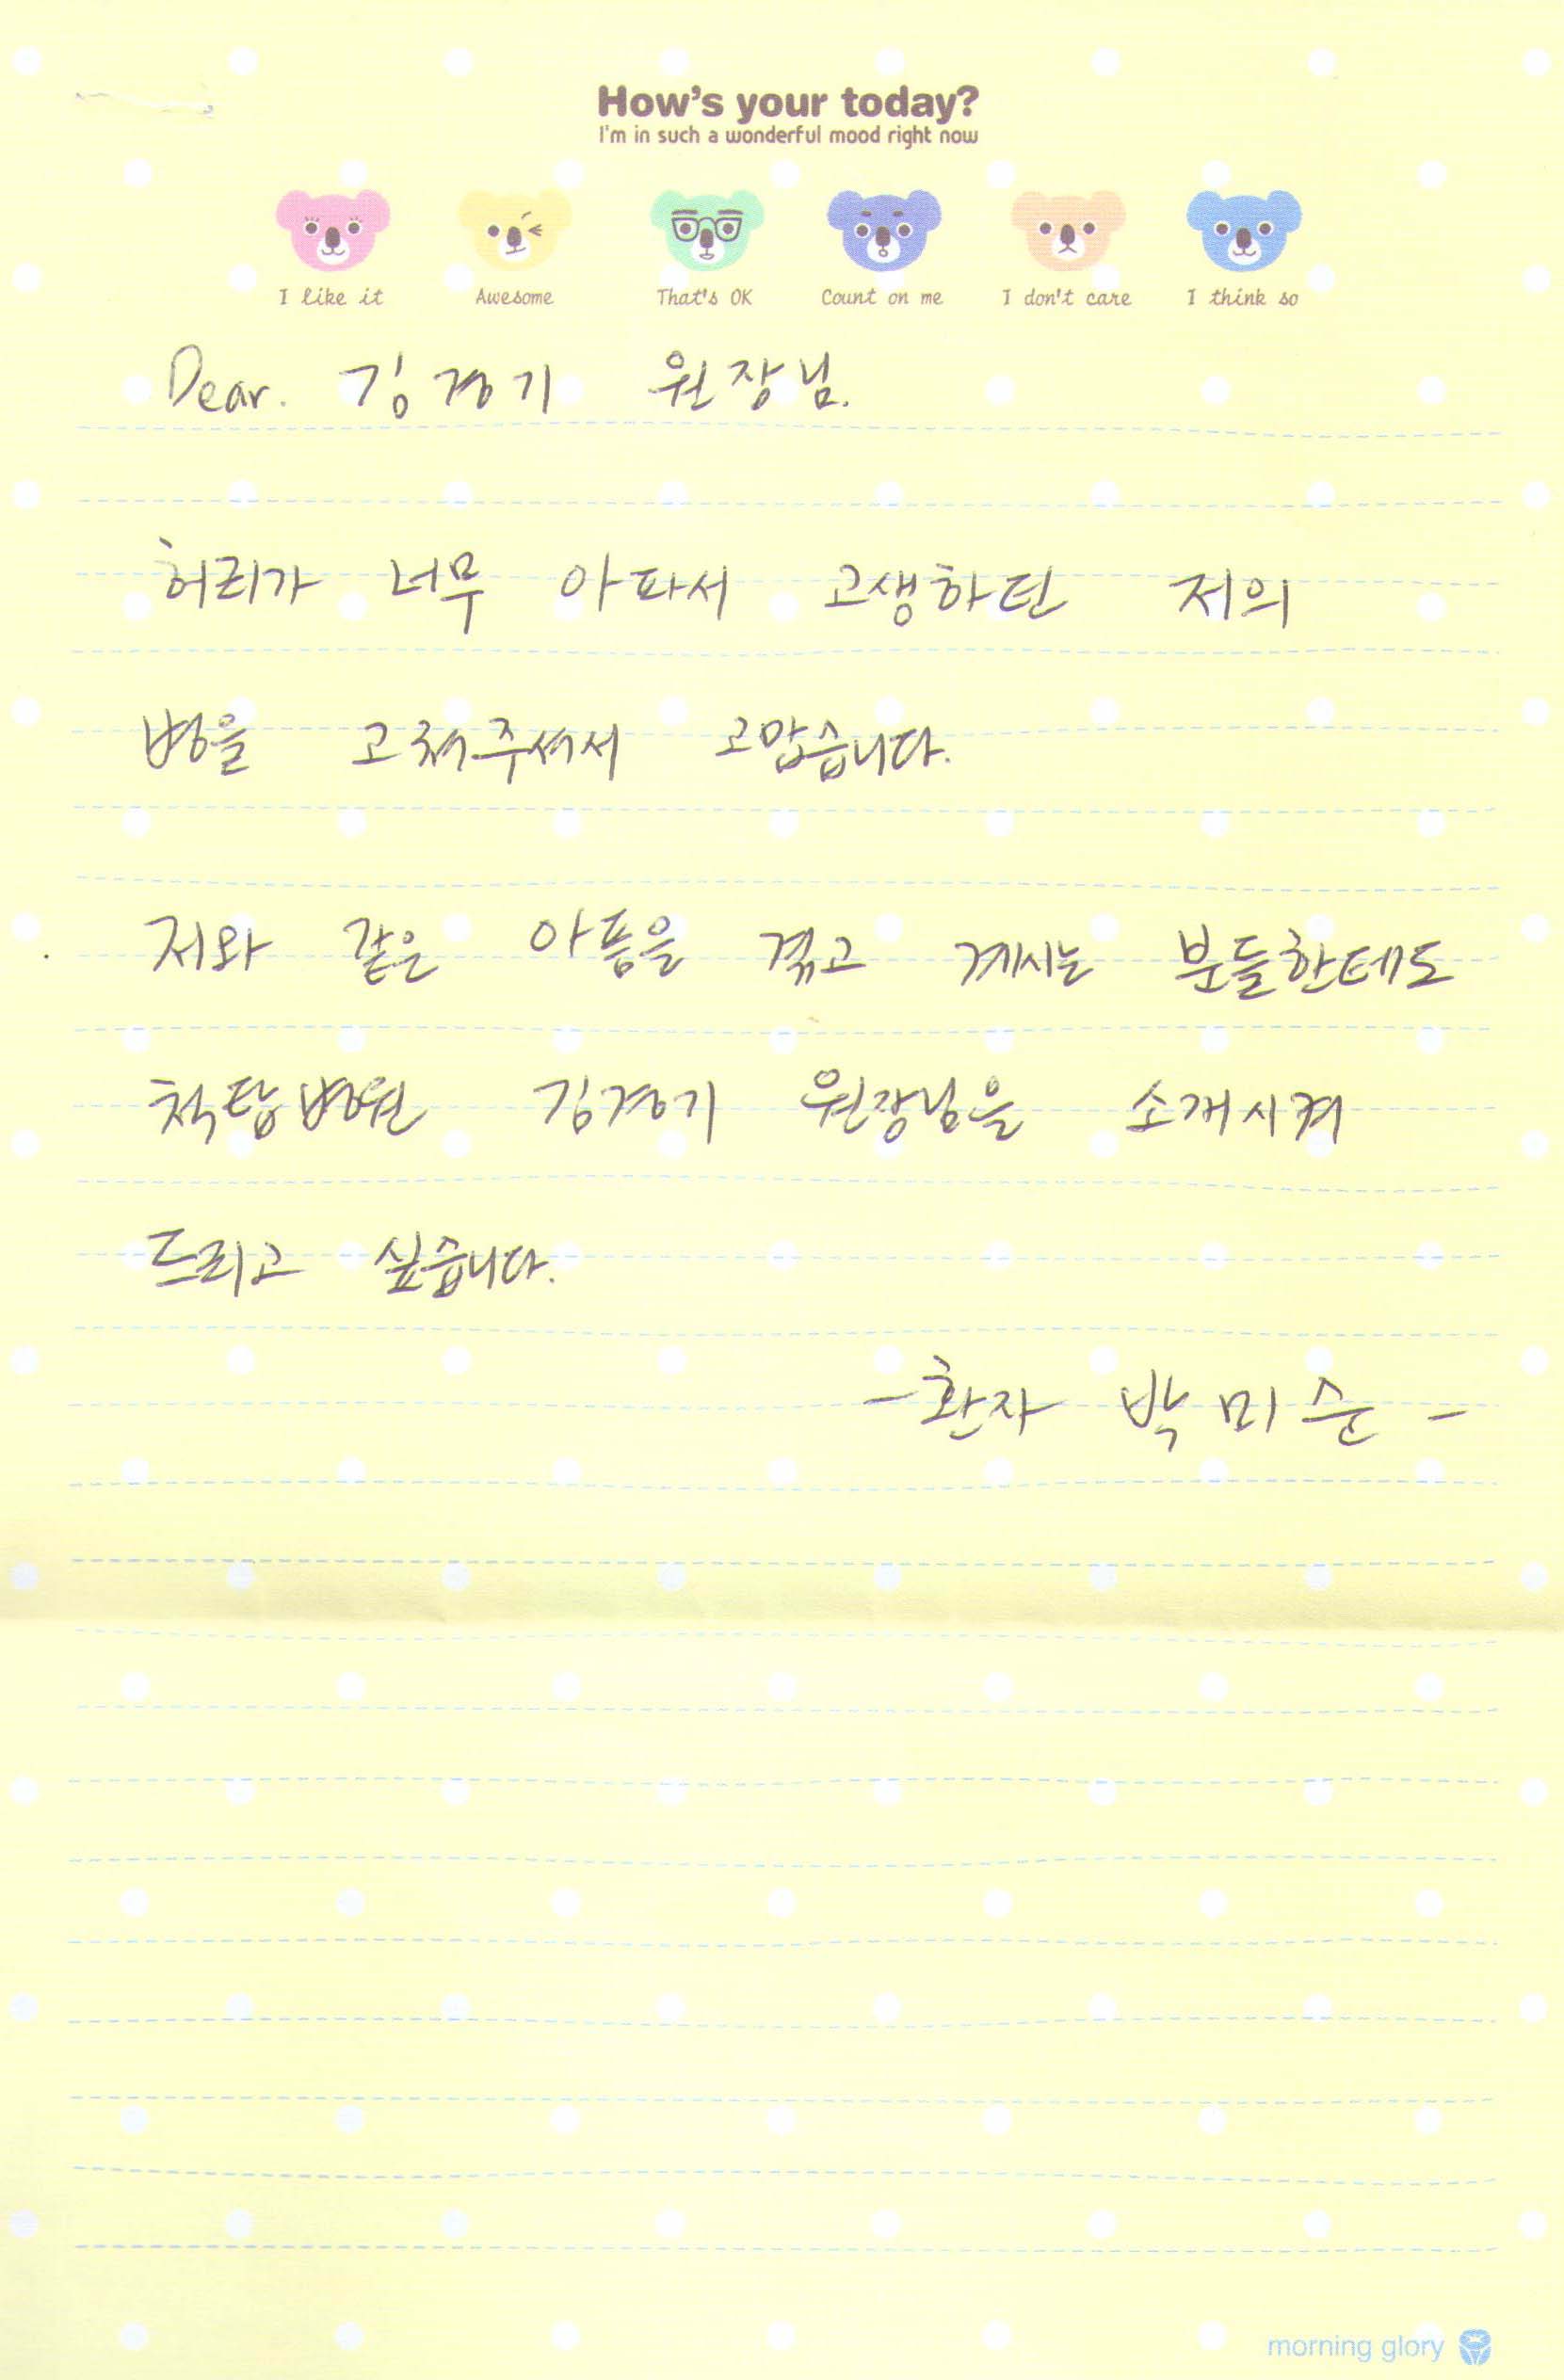 How's your today?
I'm in such a wonderful mood right now
I like it Awesome That's OK Count on me I don't care I think so
Dear. 김경기 원장님.
허리가 너무 아파서 고생하던 저의
병을 고쳐주셔서 고맙습니다.
저와 같은 아픔을 겪고 계시는 분들한테도
척탑병원 김경기 원장님을 소개시켜
드리고 싶습니다.
-환자 박미순-
morning glory